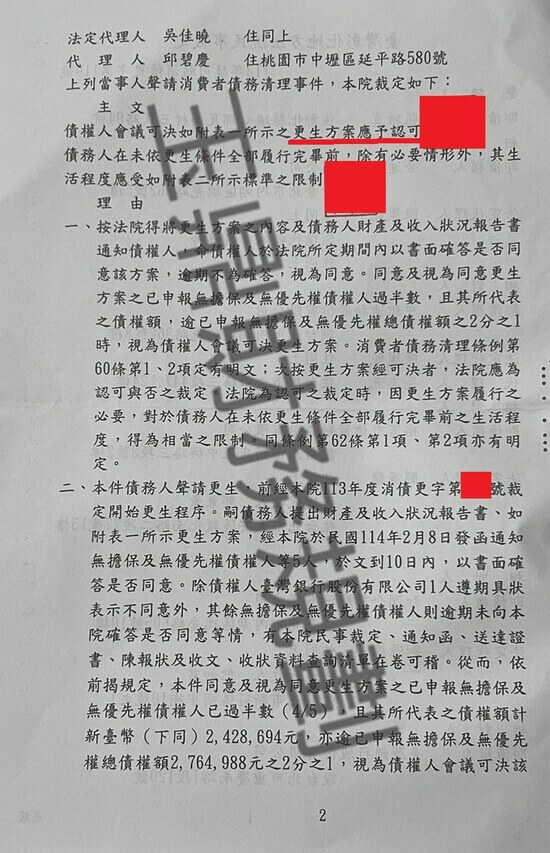 法定代理人　吳佳曉　　住同上
代　理　人　邱碧慶　　住桃園市中壢區延平路580號
上列當事人聲請消費者債務清理事件，本院裁定如下：
主　文
債權人會議可決如附表一所示之更生方案應予認可
債務人在未依更生條件全部履行完畢前，除有必要情形外，其生
活程度應受如附表二所示標準之限制
理　由
一、按法院得將更生方案之內容及債務人財產及收入狀況報告書
通知債權人，命債權人於法院所定期間內以書面確答是否同
意該方案，逾期不為確答，視為同意。同意及視為同意更生
方案之已申報無擔保及無優先權債權人過半數，且其所代表
之債權額，逾已申報無擔保及無優先權總債權額之2分之1
時，視為債權人會議可決更生方案。消費者債務清理條例第
60條第1、2項定有明文；次按更生方案經可決者，法院應為
認可與否之裁定；法院為認可之裁定時，因更生方案履行之
必要，對於債務人在未依更生條件全部履行完畢前之生活程
度，得為相當之限制。同條例第62條第1項、第2項亦有明
定。
二、本件債務人聲請更生，前經本院113年度消債更字第
號裁
定開始更生程序。嗣債務人提出財產及收入狀況報告書、如
附表一所示更生方案，經本院於民國114年2月8日發函通知
無擔保及無優先權債權人等5人，於文到10日內，以書面確
答是否同意。除債權人臺灣銀行股份有限公司1人遵期具狀
表示不同意外，其餘無擔保及無優先權債權人則逾期未向本
院確答是否同意等情，有本院民事裁定、通知函、送達證
書、陳報狀及收文、收狀資料查詢清單在卷可稽。從而，依
前揭規定，本件同意及視為同意更生方案之已申報無擔保及
無優先權債權人已過半數（4/5），且其所代表之債權額計
新臺幣（下同）2,428,694元，亦逾已申報無擔保及無優先
權總債權額2,764,988元之2分之1，視為債權人會議可決該
2